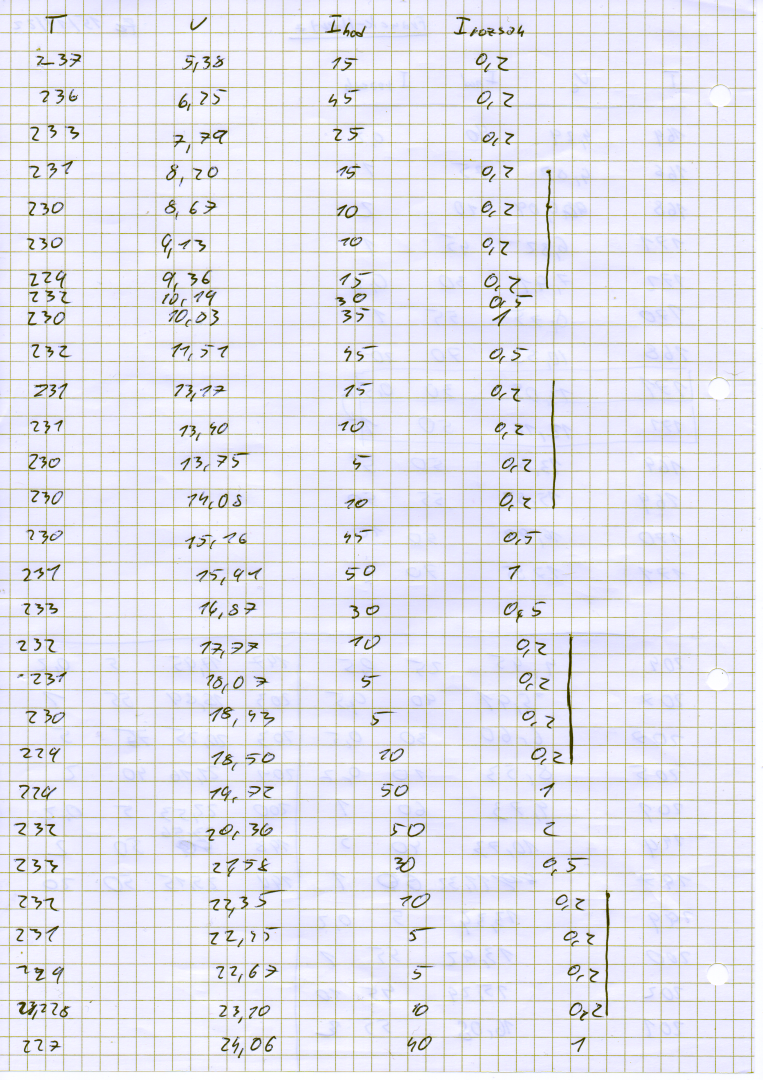 T U I hod I rozsah
237 5,38 15 0,2
236 6,25 45 0,2
233 7,79 25 0,2
231 8,20 15 0,2
230 8,67 10 0,2
230 9,13 10 0,2
229 9,36 15 0,2
232 10,19 30 0,5
230 10,03 35 1
232 11,51 45 0,5
231 13,17 15 0,2
231 13,40 10 0,2
230 13,75 5 0,2
230 14,08 10 0,2
230 15,16 45 0,5
231 15,41 50 1
233 16,87 30 0,5
232 17,77 10 0,2
231 18,07 5 0,2
230 18,43 5 0,2
229 18,50 10 0,2
229 19,72 50 1
232 20,36 50 2
233 21,58 30 0,5
232 22,35 10 0,2
231 22,45 5 0,2
229 22,67 5 0,2
228 23,10 10 0,2
227 24,06 40 1